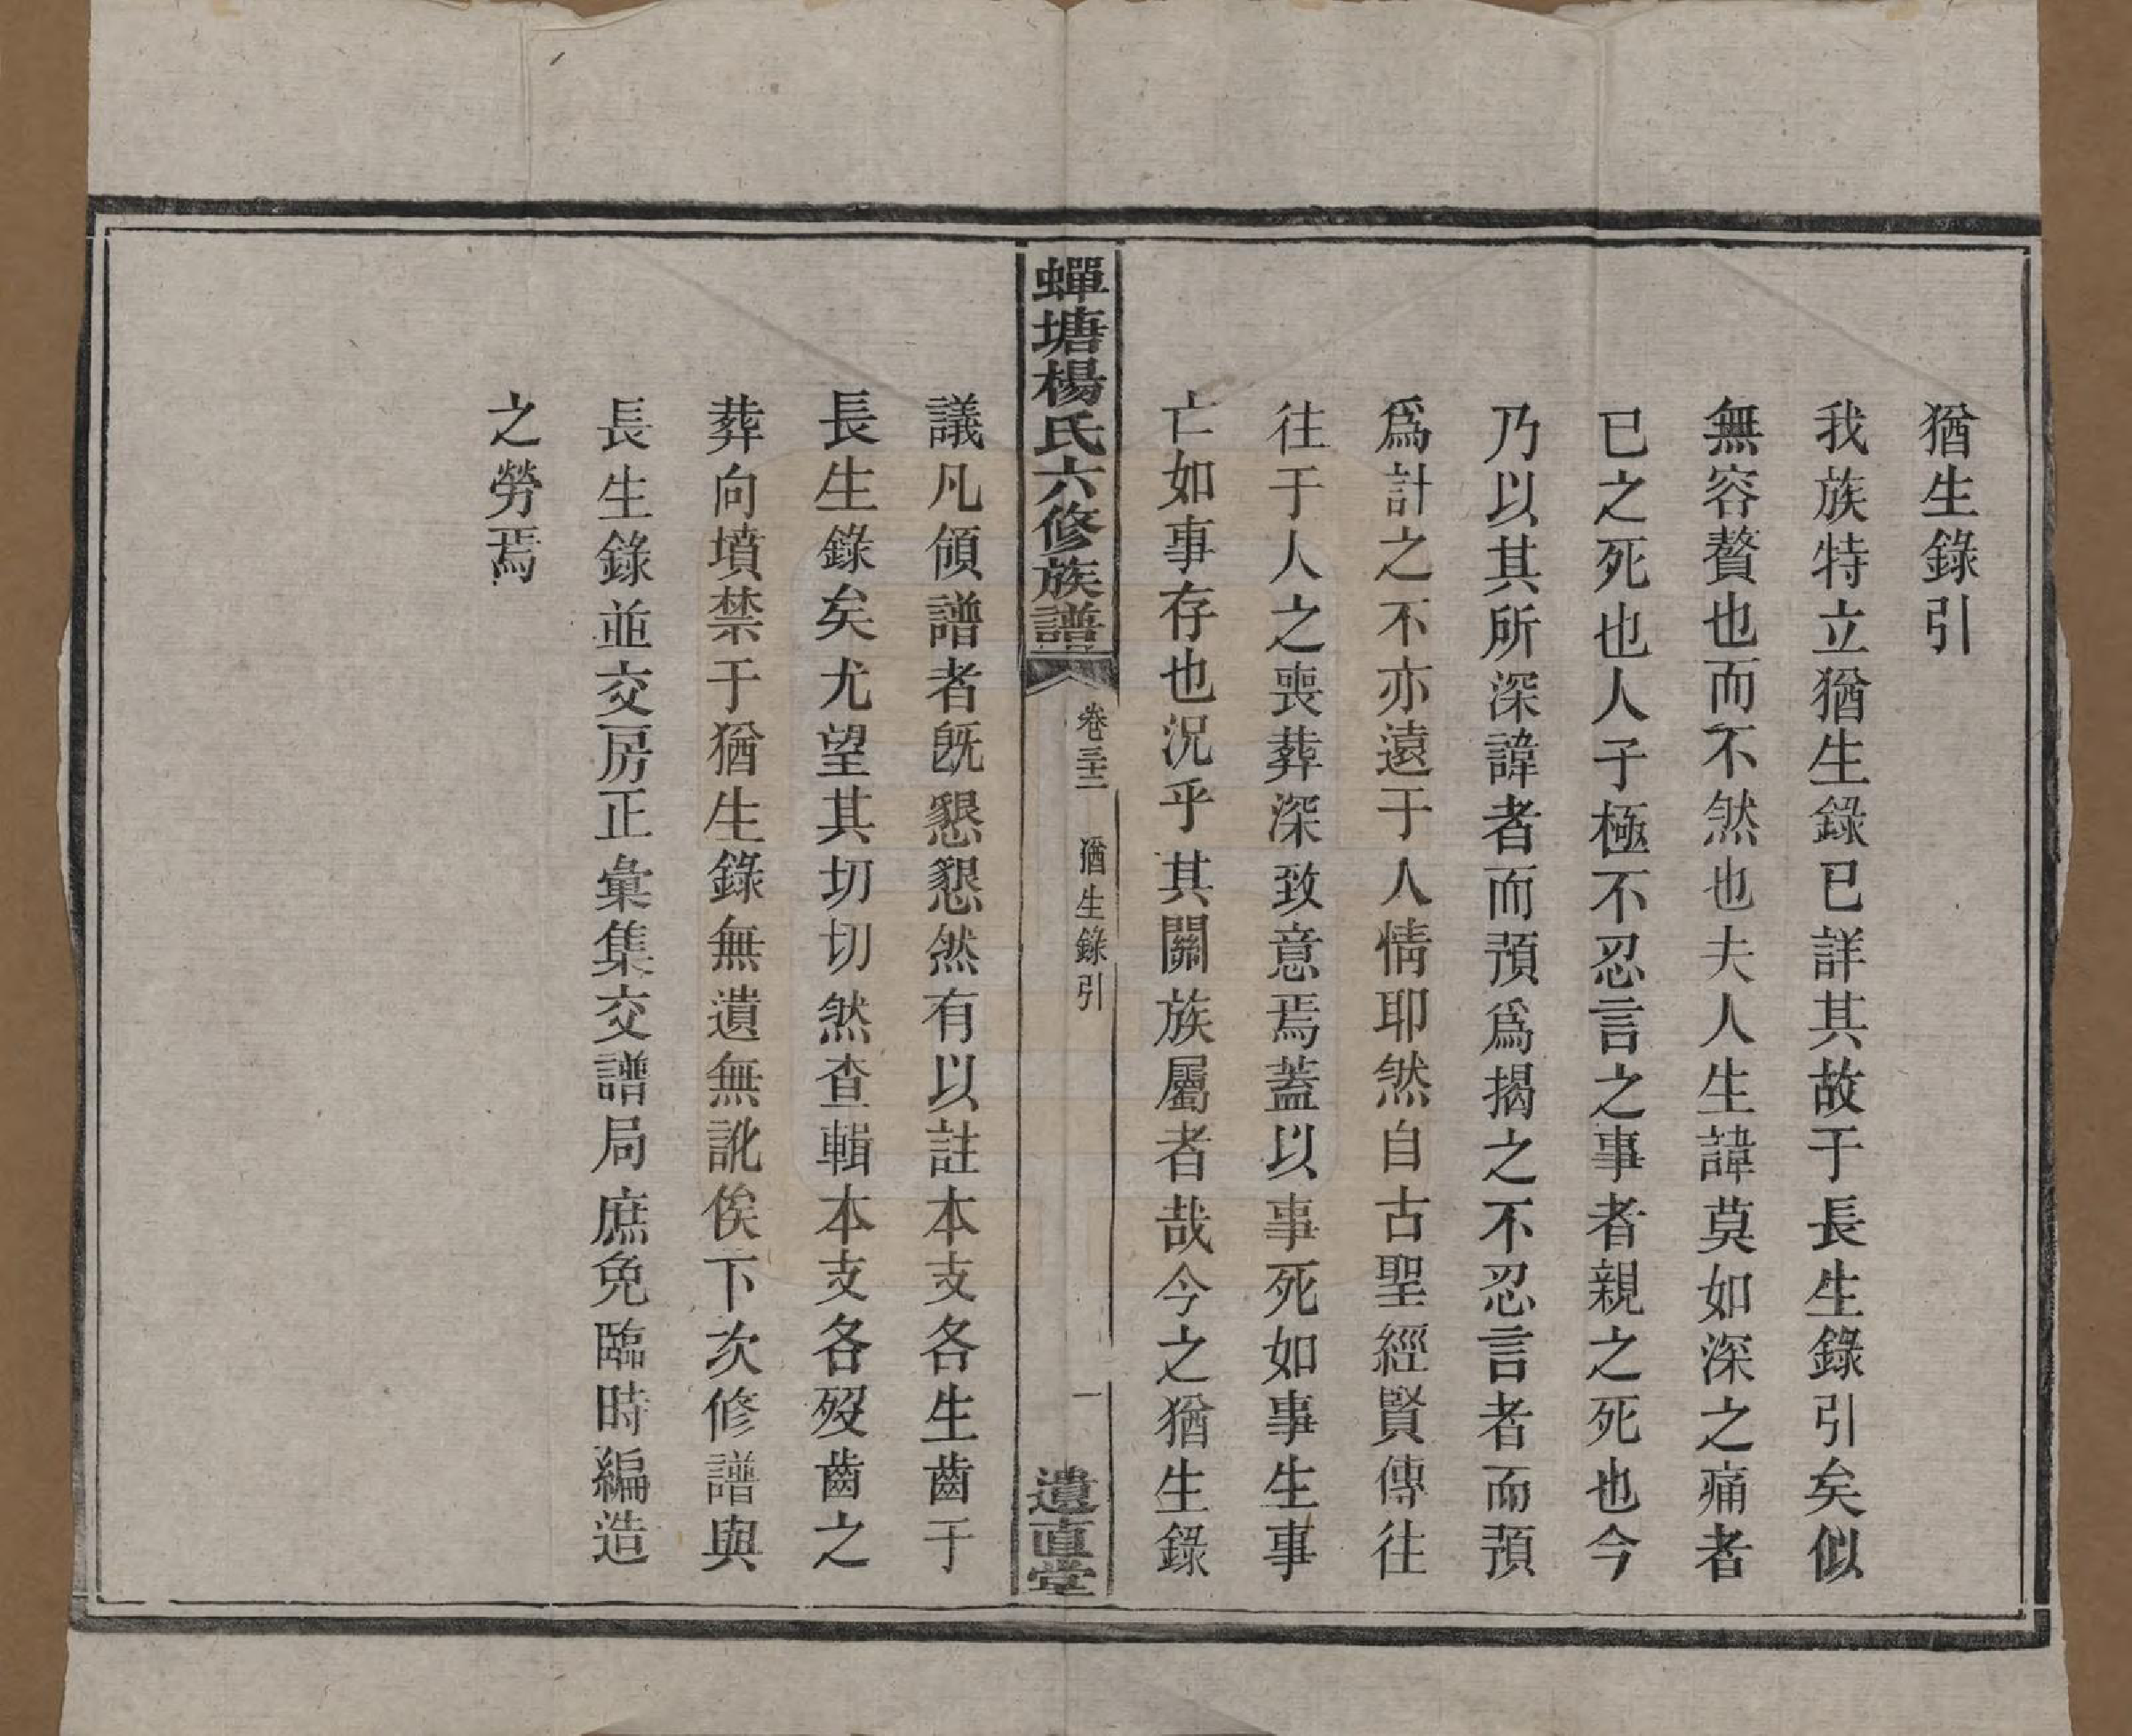 猶生錄引
我族特立猶生錄已詳其故于長生錄引矣似
無容贅也而不然也夫人生諱莫如深之痛者
已之死也人子極不忍言之事者親之死也今
乃以其所深諱者而預爲揭之不忍言者而預
爲計之不亦遠于人情耶然自古聖經賢傳往
往于人之喪葬深致意焉蓋以事死如事生事
亡如事存也況乎其關族屬者哉今之猶生錄
蟬塘楊氏六修族譜
卷三十二
猶生錄引
一
遺直堂
議凡領譜者旣懇懇然有以註本支各生齒于
長生錄矣尤望其切切然查輯本支各歿齒之
葬向墳禁于猶生錄無遺無訛俟下次修譜與
長生錄並交房正彙集交譜局庶免臨時編造
之勞焉